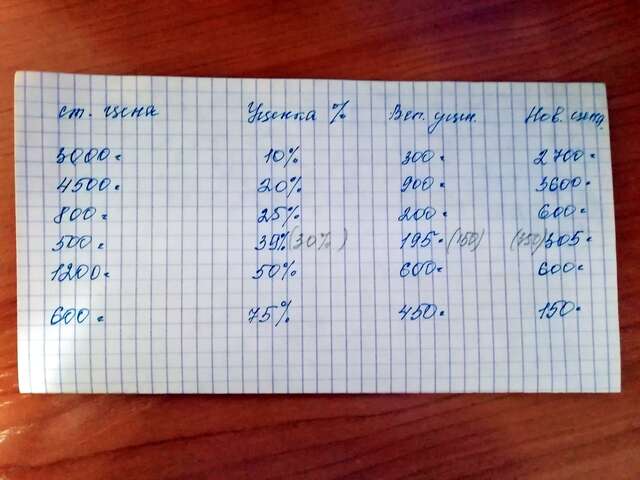 ст. цена Уценка % Вел. уцен. Нов. цена.
3000 10% 300 2700
4500 20% 900 3600
800 25% 200 600
500 39% (30%) 195 (150) (350) 305
1200 50% 600 600
600 75% 450 150